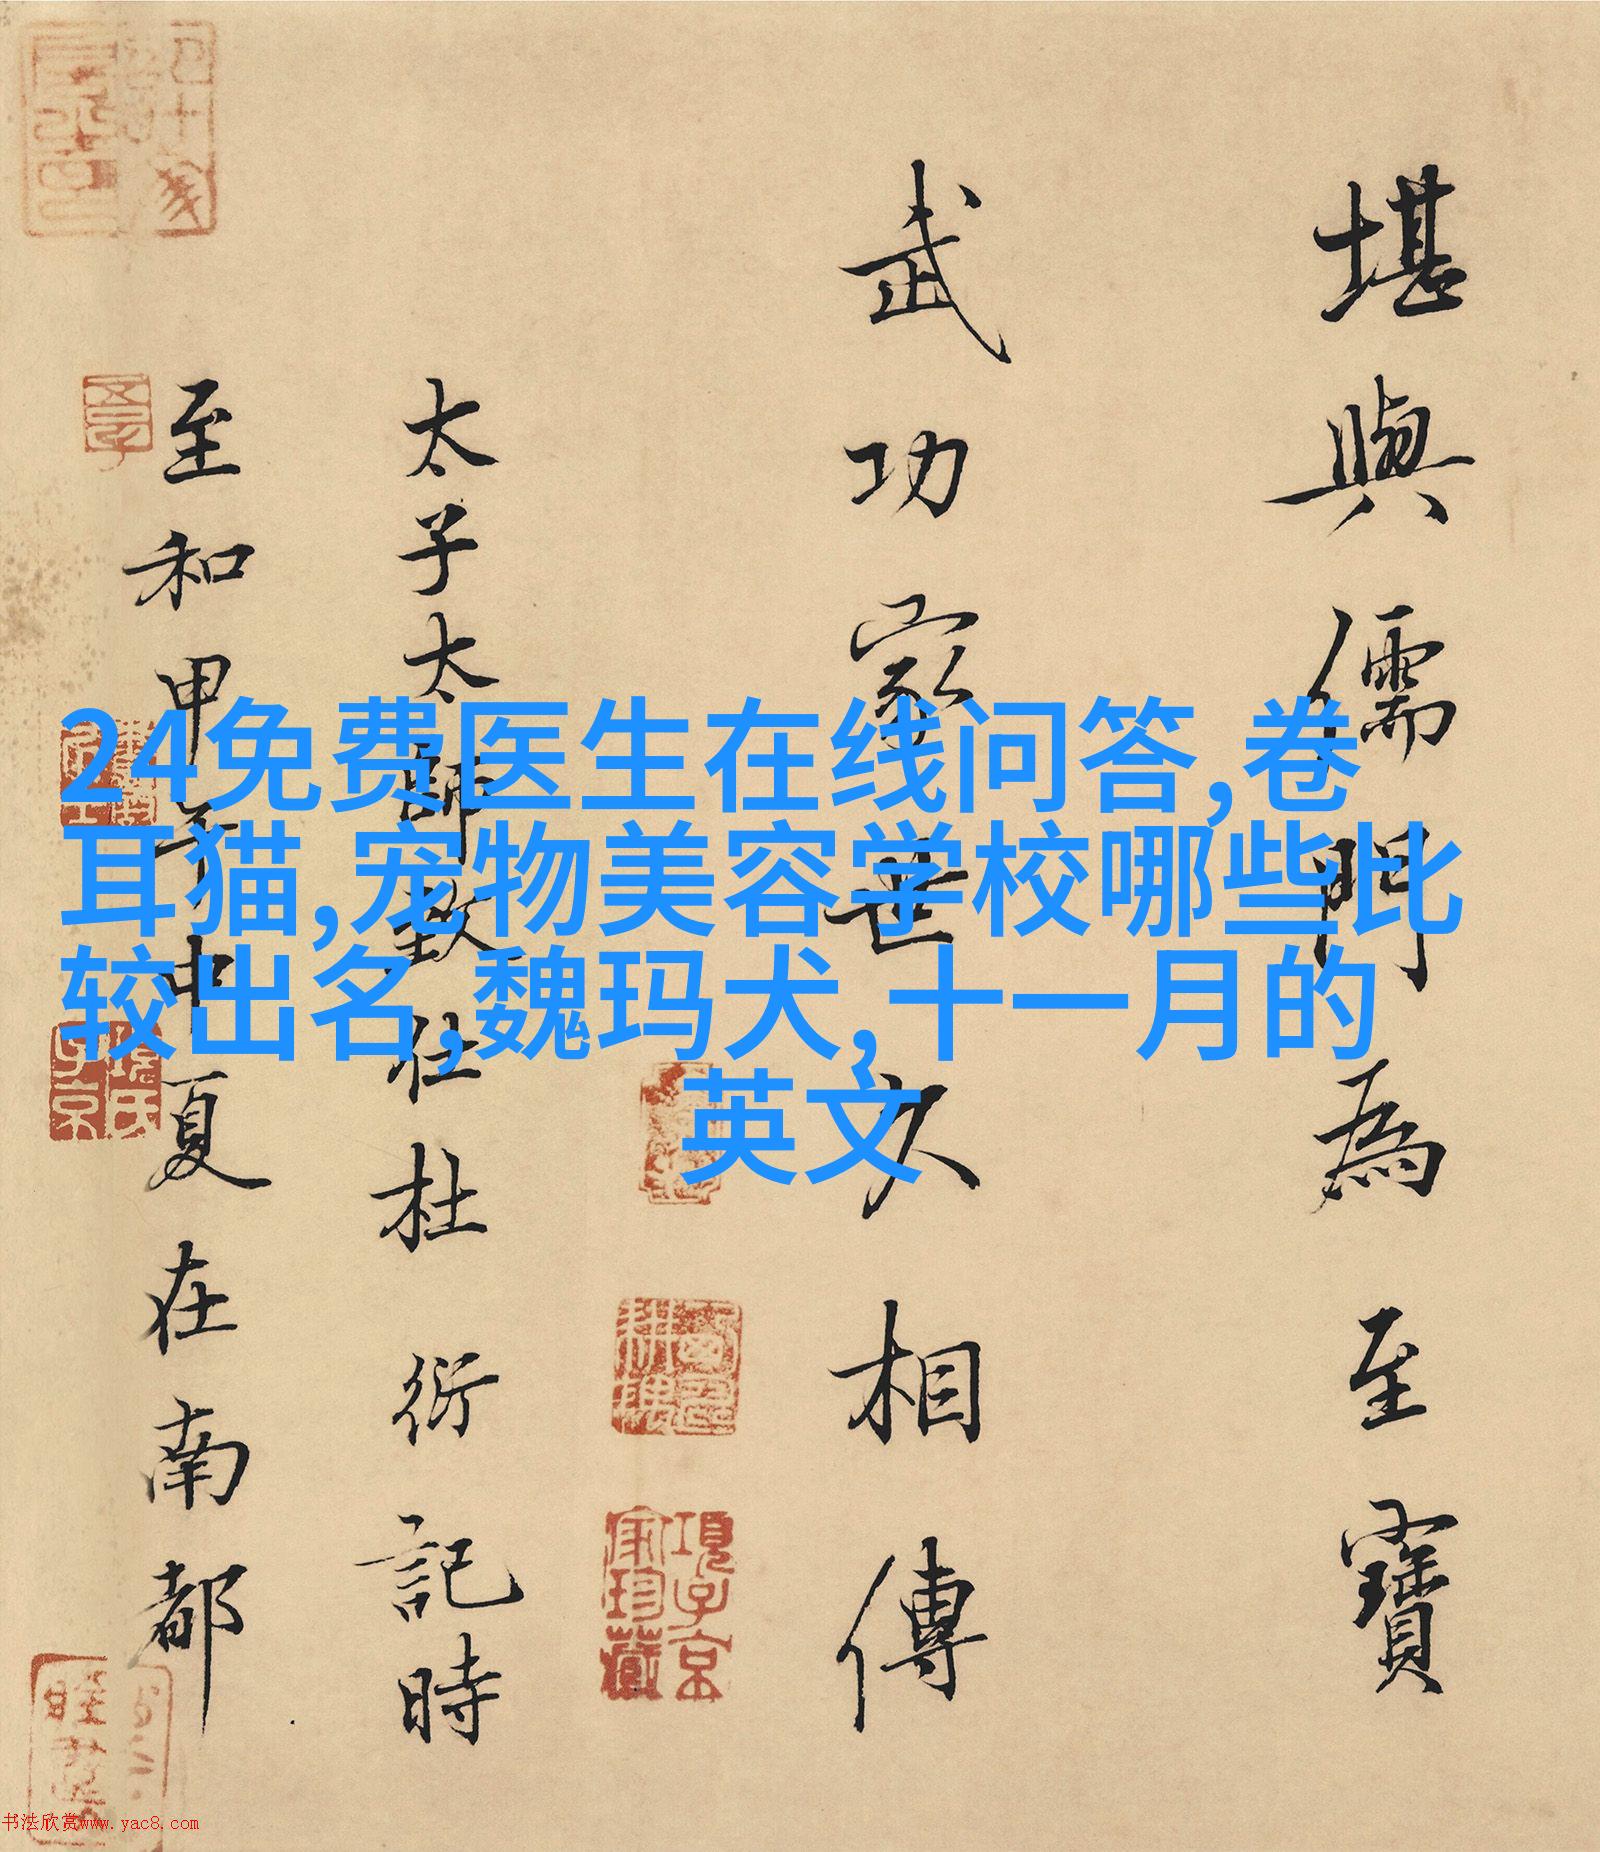 堪與儒門為至寶
武功家世久相傳
太子太師致仕杜衍記時
至和甲午中夏在南都
24免费医生在线问答,卷
耳猫,宠物美容学校哪些比
较出名,魏玛犬,十一月的
英文
項子京
家珍藏
項氏
子京
书法欣赏www.yac8.com